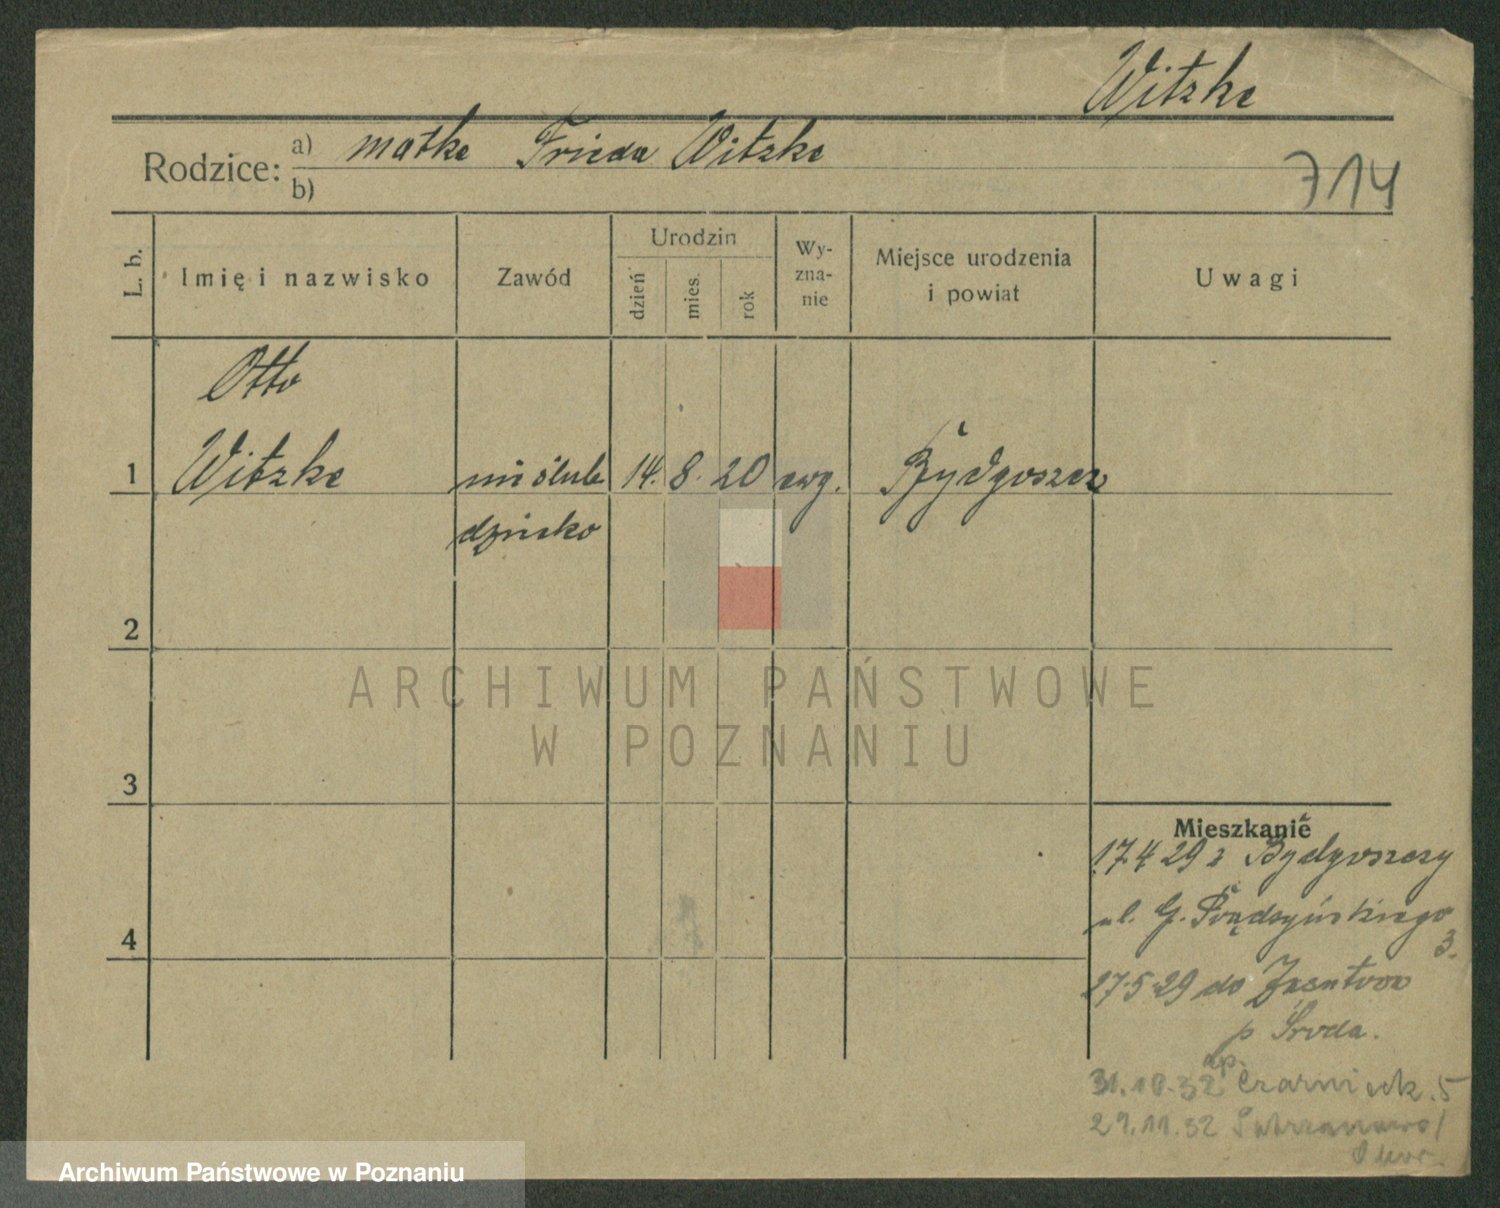 Witzke
Rodzice: a) matka Frieda Witzke
b)
714
L. b.
Imię i nazwisko
Zawód
Urodzin
dzień
mies.
rok
Wy-
zna-
nie
Miejsce urodzenia
i powiat
Uwagi
Otto
1 Witzke nieślub 14. 8. 20 ewg. Bydgoszcz
dziecko
2
3
4
ARCHIWUM PAŃSTWOWE
W POZNANIU
Mieszkanie
17.4 29 z Bydgoszczy
ul. G.
3.
27.5.29 do
p Środa.
31.10.32 Czarnieck. 5
29.11.32
Archiwum Państwowe w Poznaniu